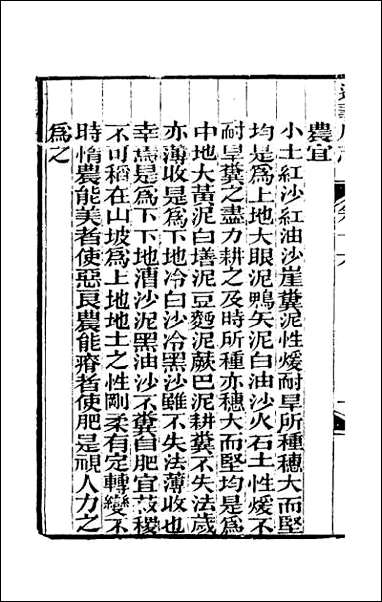 農宜
小土紅沙紅油沙崖糞泥性煖耐旱所種穗大而堅
均是爲上地大眼泥鴨矢泥白油沙火石土性煖不
耐旱糞之盡力耕之及時所種亦穗大而堅均是爲
中地大黃泥白墡泥豆麪泥蕨巴泥耕糞不失法歲
亦薄收是爲下地冷白沙冷黑沙雖不失法薄收也
幸焉是爲下下地漕沙泥黑油沙不糞自肥宜菽稷
不可稻在山坡爲上地地土之性剛柔有定轉變不
時惰農能美者使惡良農能瘠者使肥是視人力之
爲之